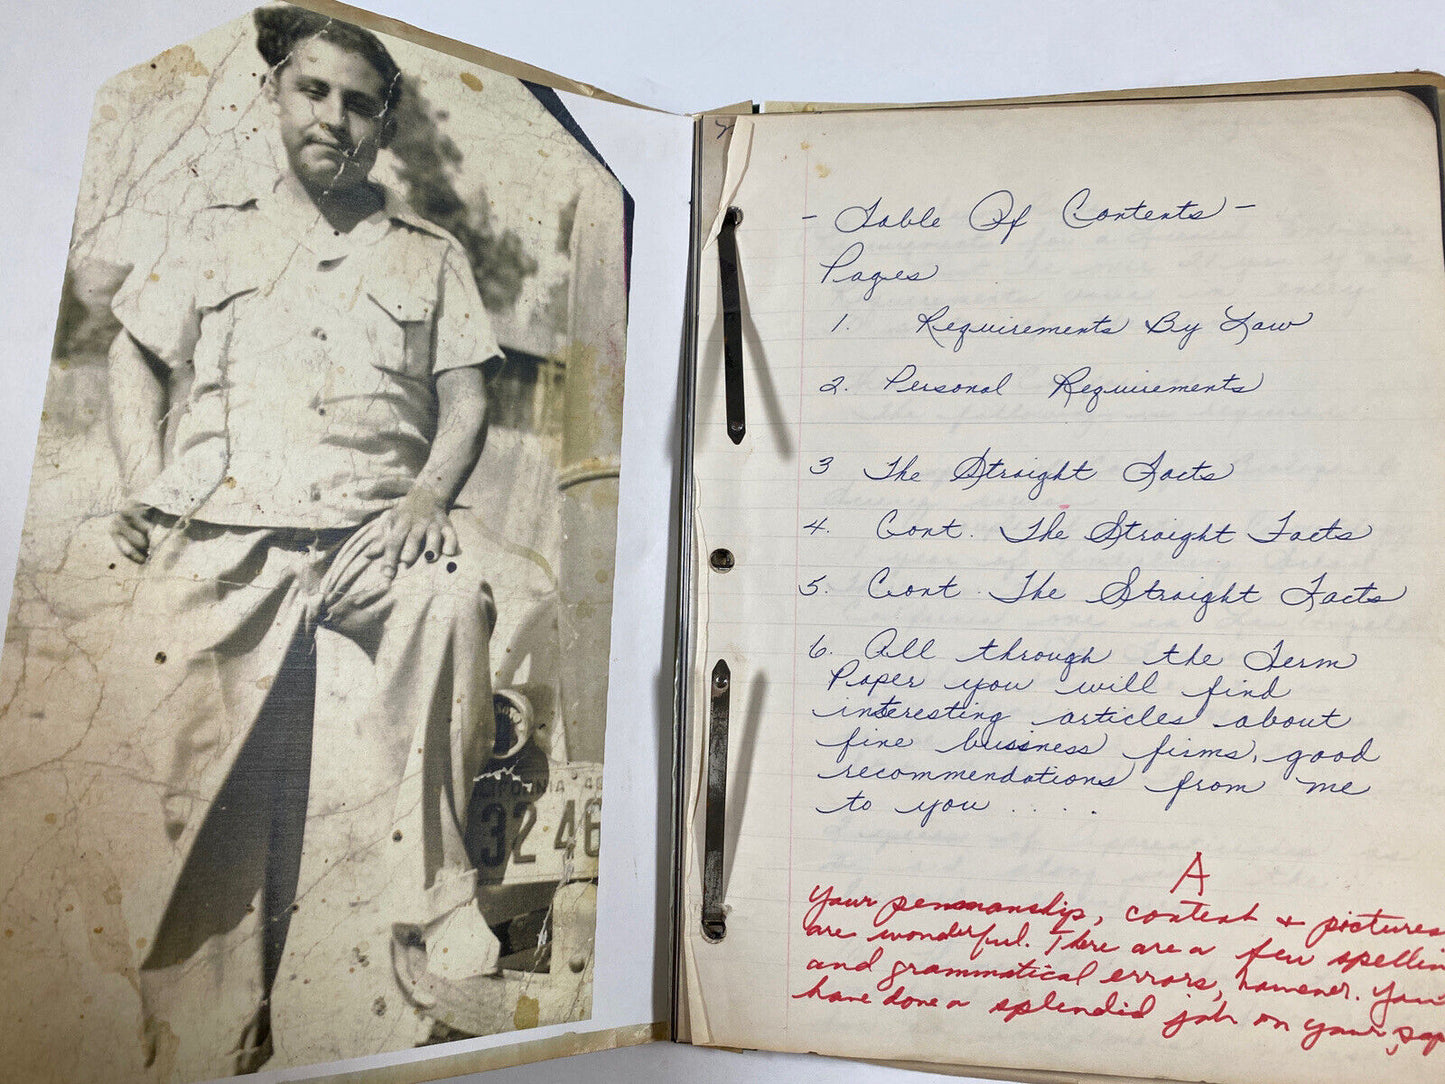 CALIFORNIA 46
32 46
- Table Of Contents -
Pages
1. Requirements By Law
2. Personal Requirements
3 The Straight Facts
4. Cont. The Straight Facts
5. Cont. The Straight Facts
6. All through the Term
Paper you will find
interesting articles about
fine business firms, good
recommendations from me
to you . . . .
A
Your penmanship, content & pictures
are wonderful. There are a few spellin
and grammatical errors, however. You
have done a splendid job on your pap